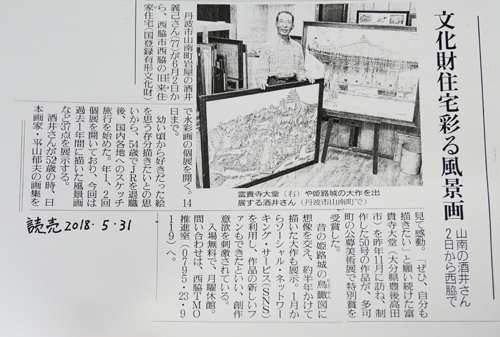 文化財住宅彩る風景画
山南の酒井さん
2日から西脇で
丹波市山南町岩屋の酒井
義己さん(77)が6月2日か
ら、西脇市西脇の旧来住
家住宅(国登録有形文化財)
で水彩画の個展を開く。14
日まで。
幼い頃から好きだった絵
を思う存分描きたいとの思
いから、54歳でJRを退職
後、国内各地へのスケッチ
旅行を始めた。年1、2回
個展を開いており、今回は
過去1年間に描いた風景画
など37点を展示する。
酒井さんが52歳の時、日
本画家・平山郁夫の画集を
富貴寺大堂(右)や姫路城の大作を出
展する酒井さん(丹波市山南町で)
見て感動。「ぜひ、自分も
描きたい」と願い続けた富
貴寺大堂(大分県豊後高田
市)を昨年11月に訪ね、制
作した50号の作品が、多可
町の公募美術展で特別賞を
受賞した。
昔の姫路城の鳥瞰図に
想像を交え、約半年かけて
描いた大作も展示。1月か
らソーシャル・ネットワー
キング・サービス(SNS)
を利用し、作品の新しいフ
ァンもできたといい、創作
意欲を刺激されている。
入場無料で、月曜休館。
問い合わせは、西脇TMO
推進室(0795・23・9
119)へ。
読売 2018・5・31